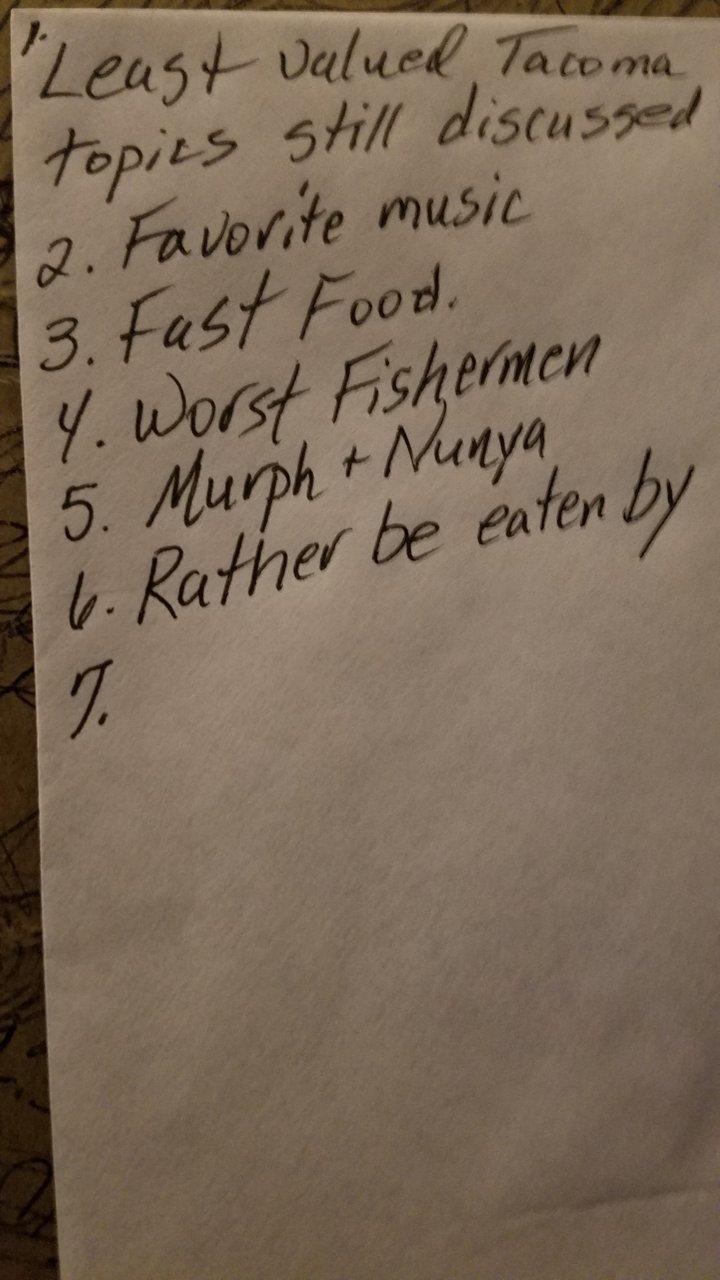 1. Least valued Tacoma
topics still discussed
2. Favorite music
3. Fast Food.
4. Worst Fishermen
5. Murph + Nunya
6. Rather be eaten by
7.